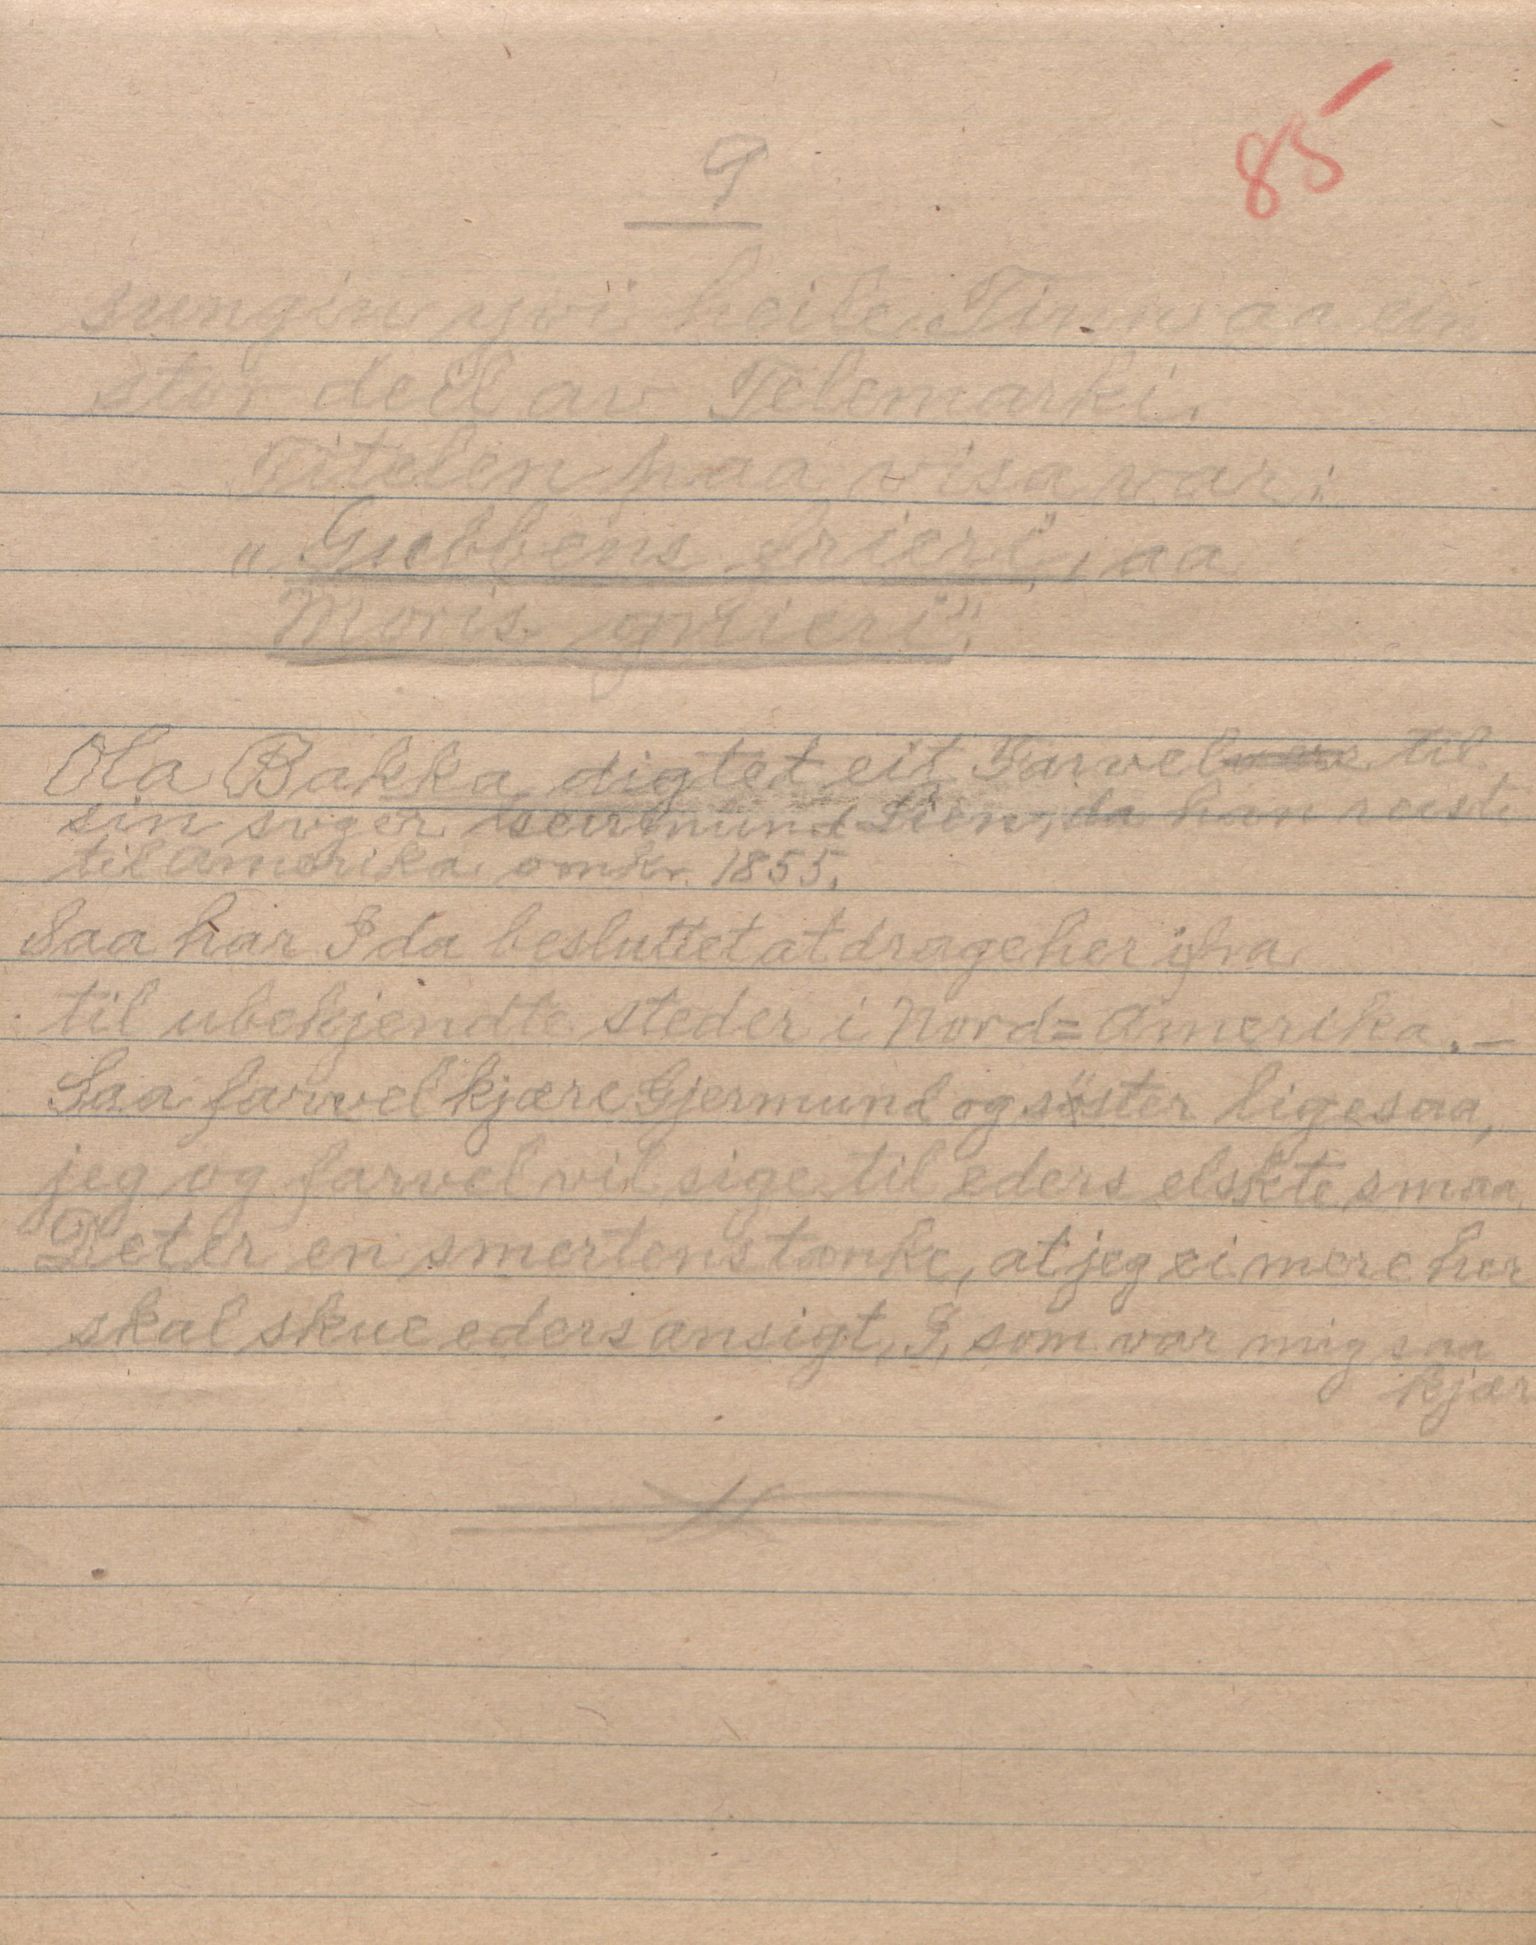 85
9
sungin yvi heile Tinn aa ein
stor deil av Telemarki.
Titelen paa visa var:
"Gubbens frieri, aa
Moris gnieri".
Ola Bakka digtet eit Farvel til
sin svoger Lien, da han reiste
til Amerika omkr. 1855.
Saa har I da besluttet at drage her ifra
til ubekjendte steder i Nord=Amerika.—
Saa farvel kjære Gjermund og söster ligesaa,
jeg og farvel vil sige til eders elskte smaa
Det er en smertens tanke, at jeg ei mere her
skal skue eders ansigt, I, som var mig saa
kjær